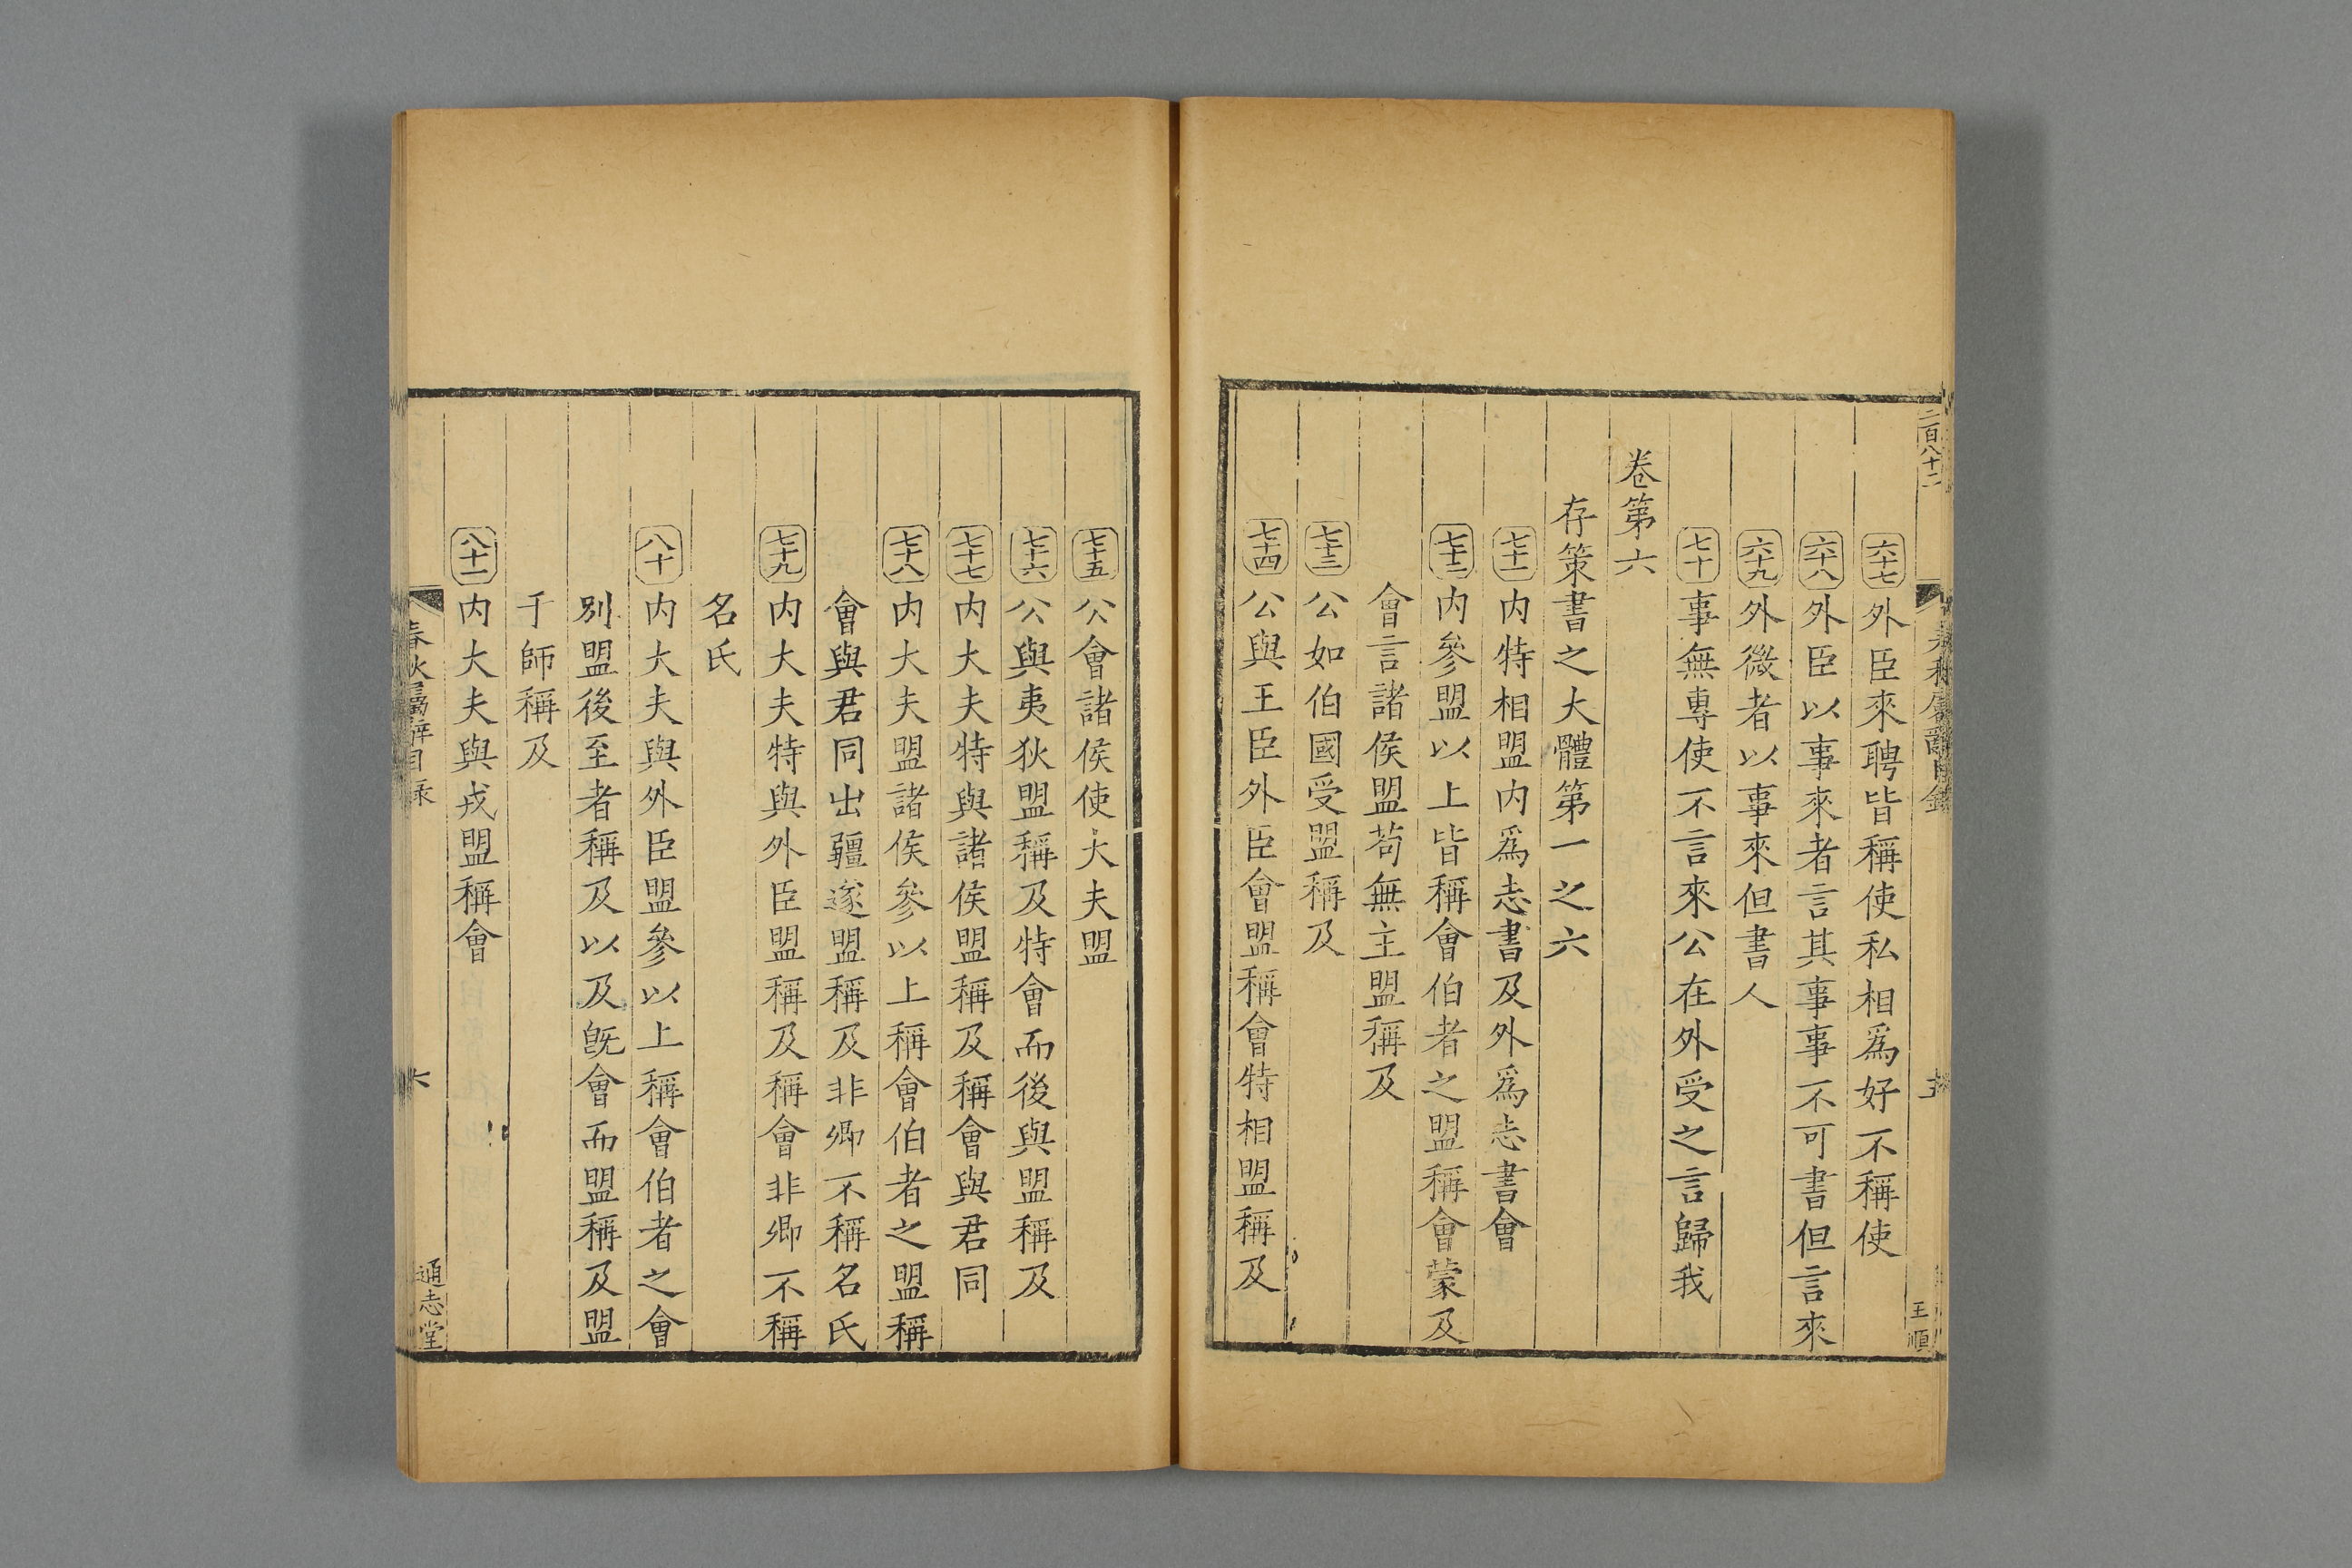 二百八十二
春秋屬辭目錄
五
王順
六十七外臣來聘皆稱使私相爲好不稱使
六十八外臣以事來者言其事事不可書但言來
六十九外微者以事來但書人
七十事無專使不言來公在外受之言歸我
卷第六
存策書之大體第一之六
七十一内特相盟内爲志書及外爲志書會
七十二内參盟以上皆稱會伯者之盟稱會蒙及
會言諸侯盟苟無主盟稱及
七十三公如伯國受盟稱及
七十四公與王臣外臣會盟稱會特相盟稱及
七十五公會諸侯使大夫盟
七十六公與夷狄盟稱及特會而後與盟稱及
七十七内大夫特與諸侯盟稱及稱會與君同
七十八内大夫盟諸侯參以上稱會伯者之盟稱
會與君同出疆遂盟稱及非卿不稱名氏
七十九内大夫特與外臣盟稱及稱會非卿不稱
名氏
八十内大夫與外臣盟參以上稱會伯者之會
別盟後至者稱及以及旣會而盟稱及盟
于師稱及
八十一内大夫與戎盟稱會
春秋屬辭目录
六
通志堂